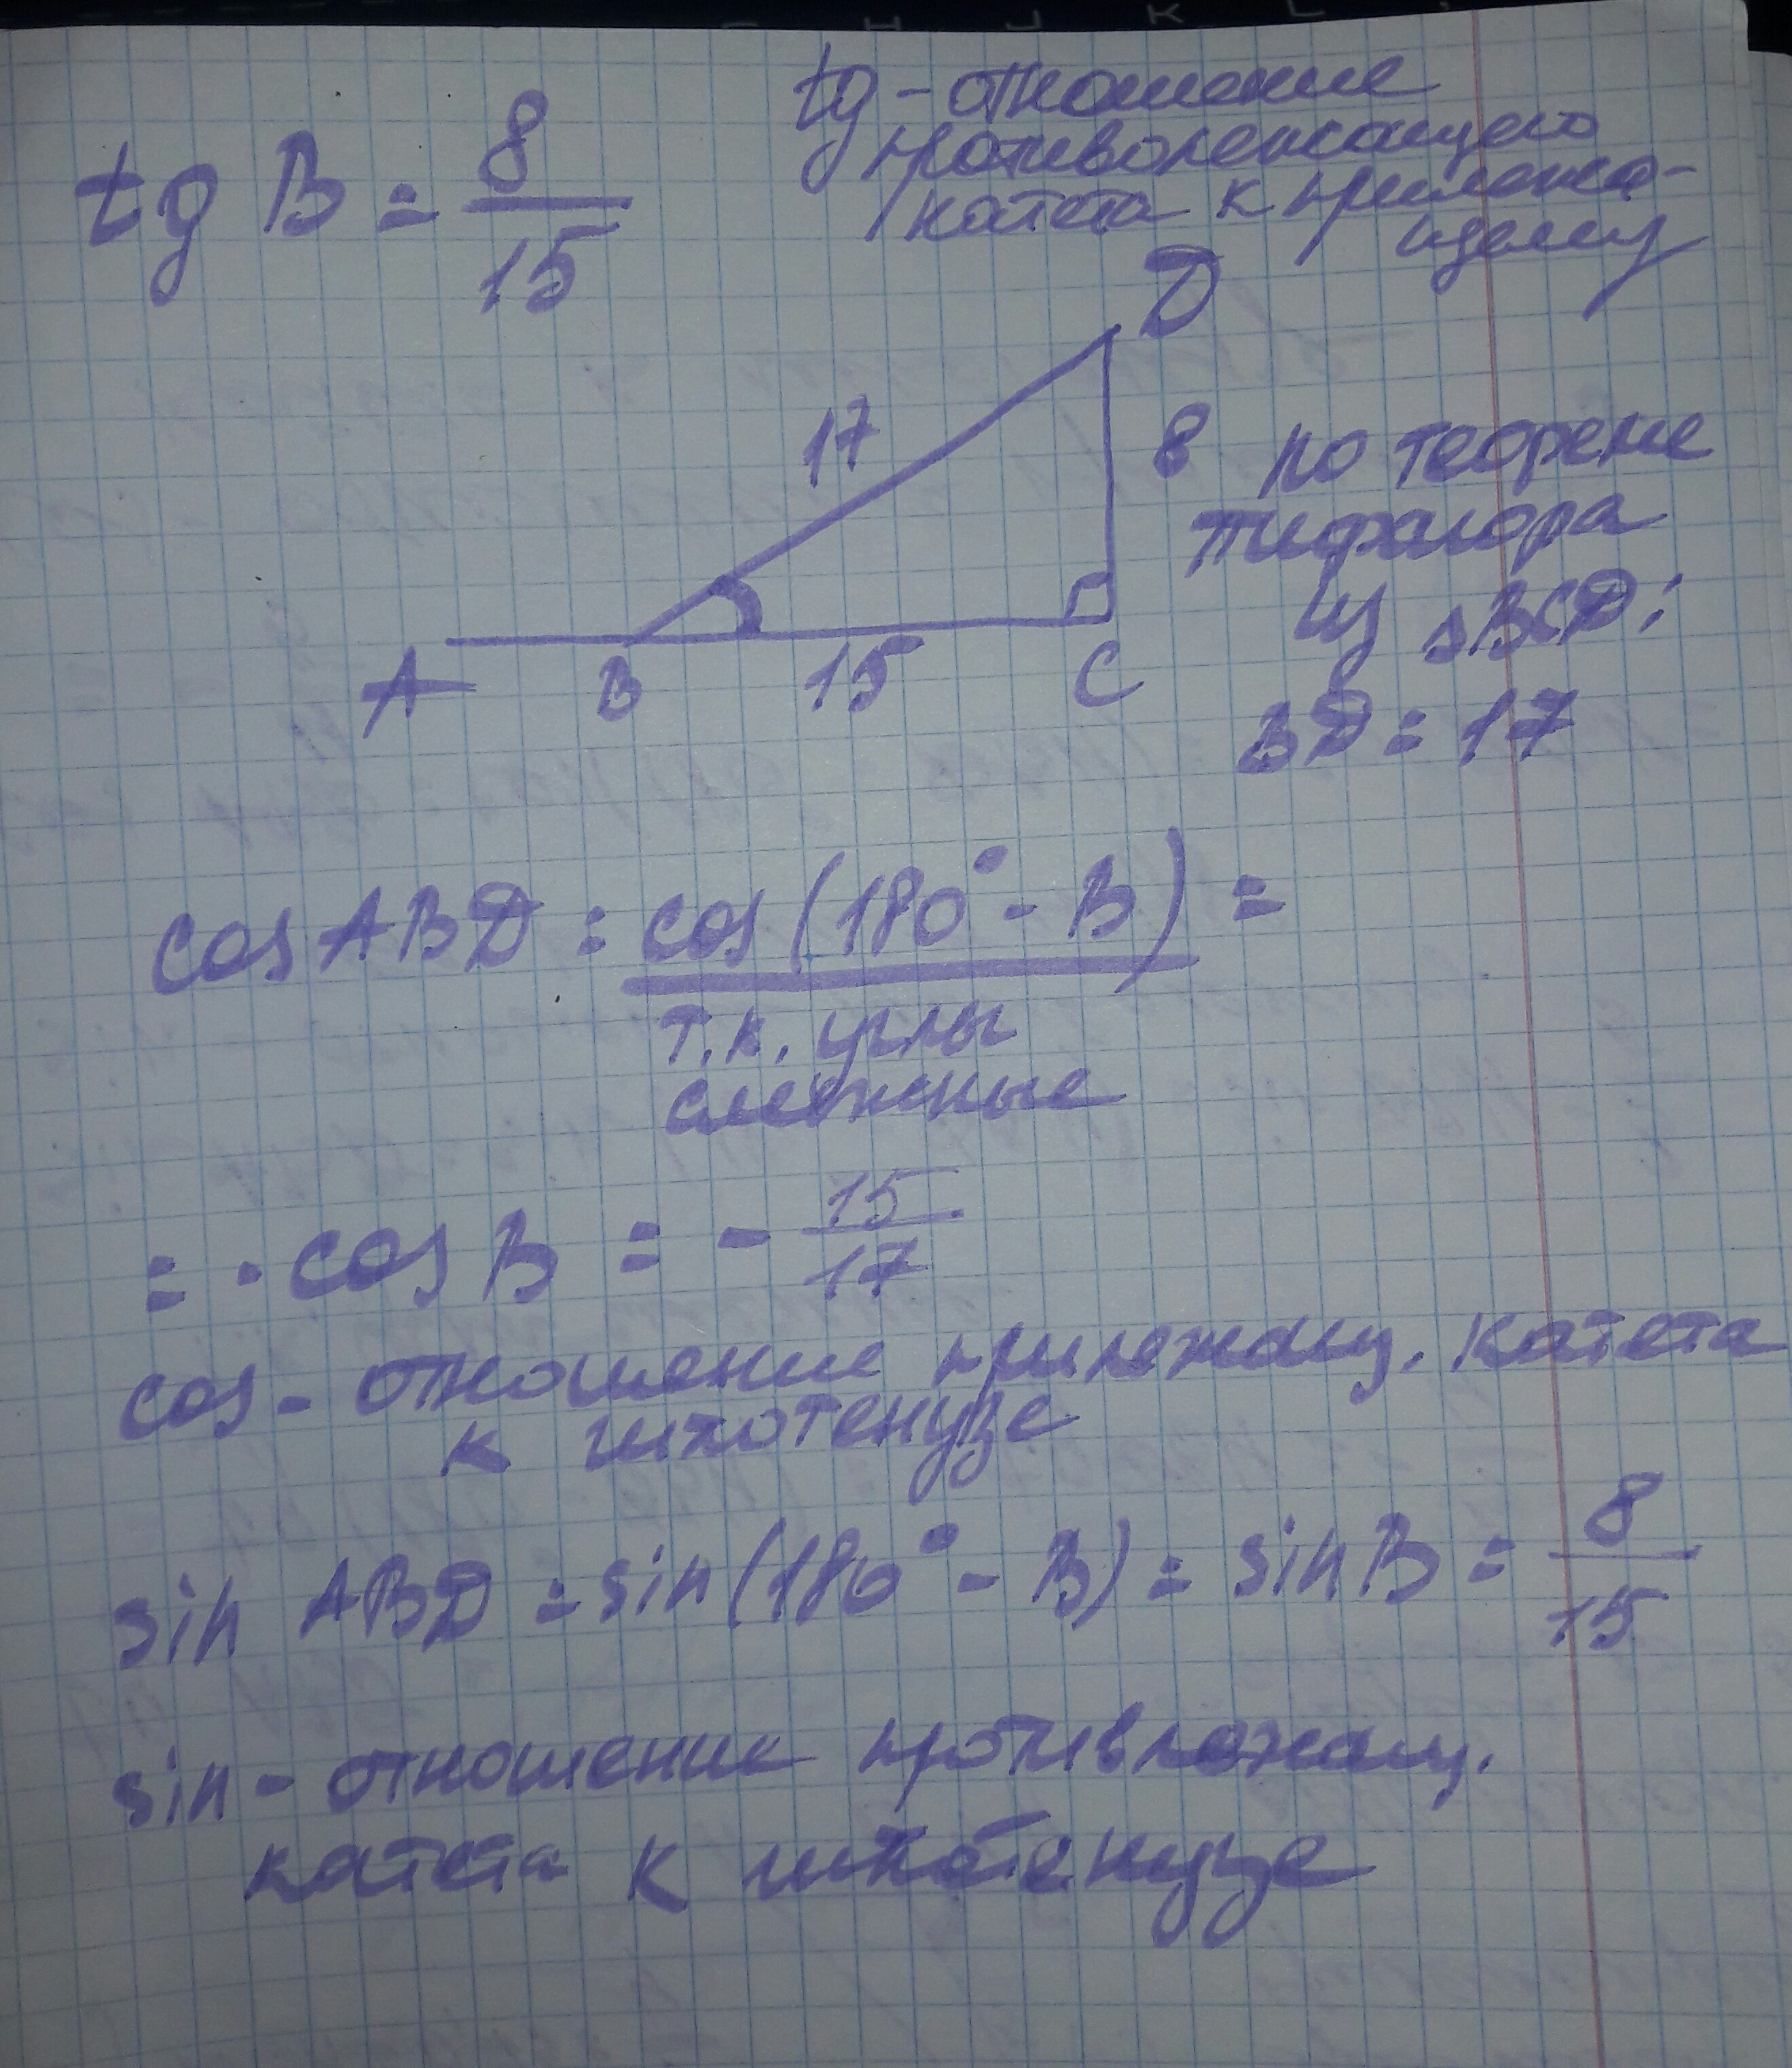 tg B = 8/15
tg - отношение
противолежащего
катета к прилежа-
щему
D
17
8
A
B
15
C
по теореме
пифагора
из ΔBCD:
BD = 17
cos ABD = cos (180° - B) =
т.к. углы
смежные
= - cos B = - 15/17
cos - отношение прилежащ. катета
к гипотенузе
sin ABD = sin (180° - B) = sin B = 8/15
sin - отношение противлежащ.
катета к гипотенузе